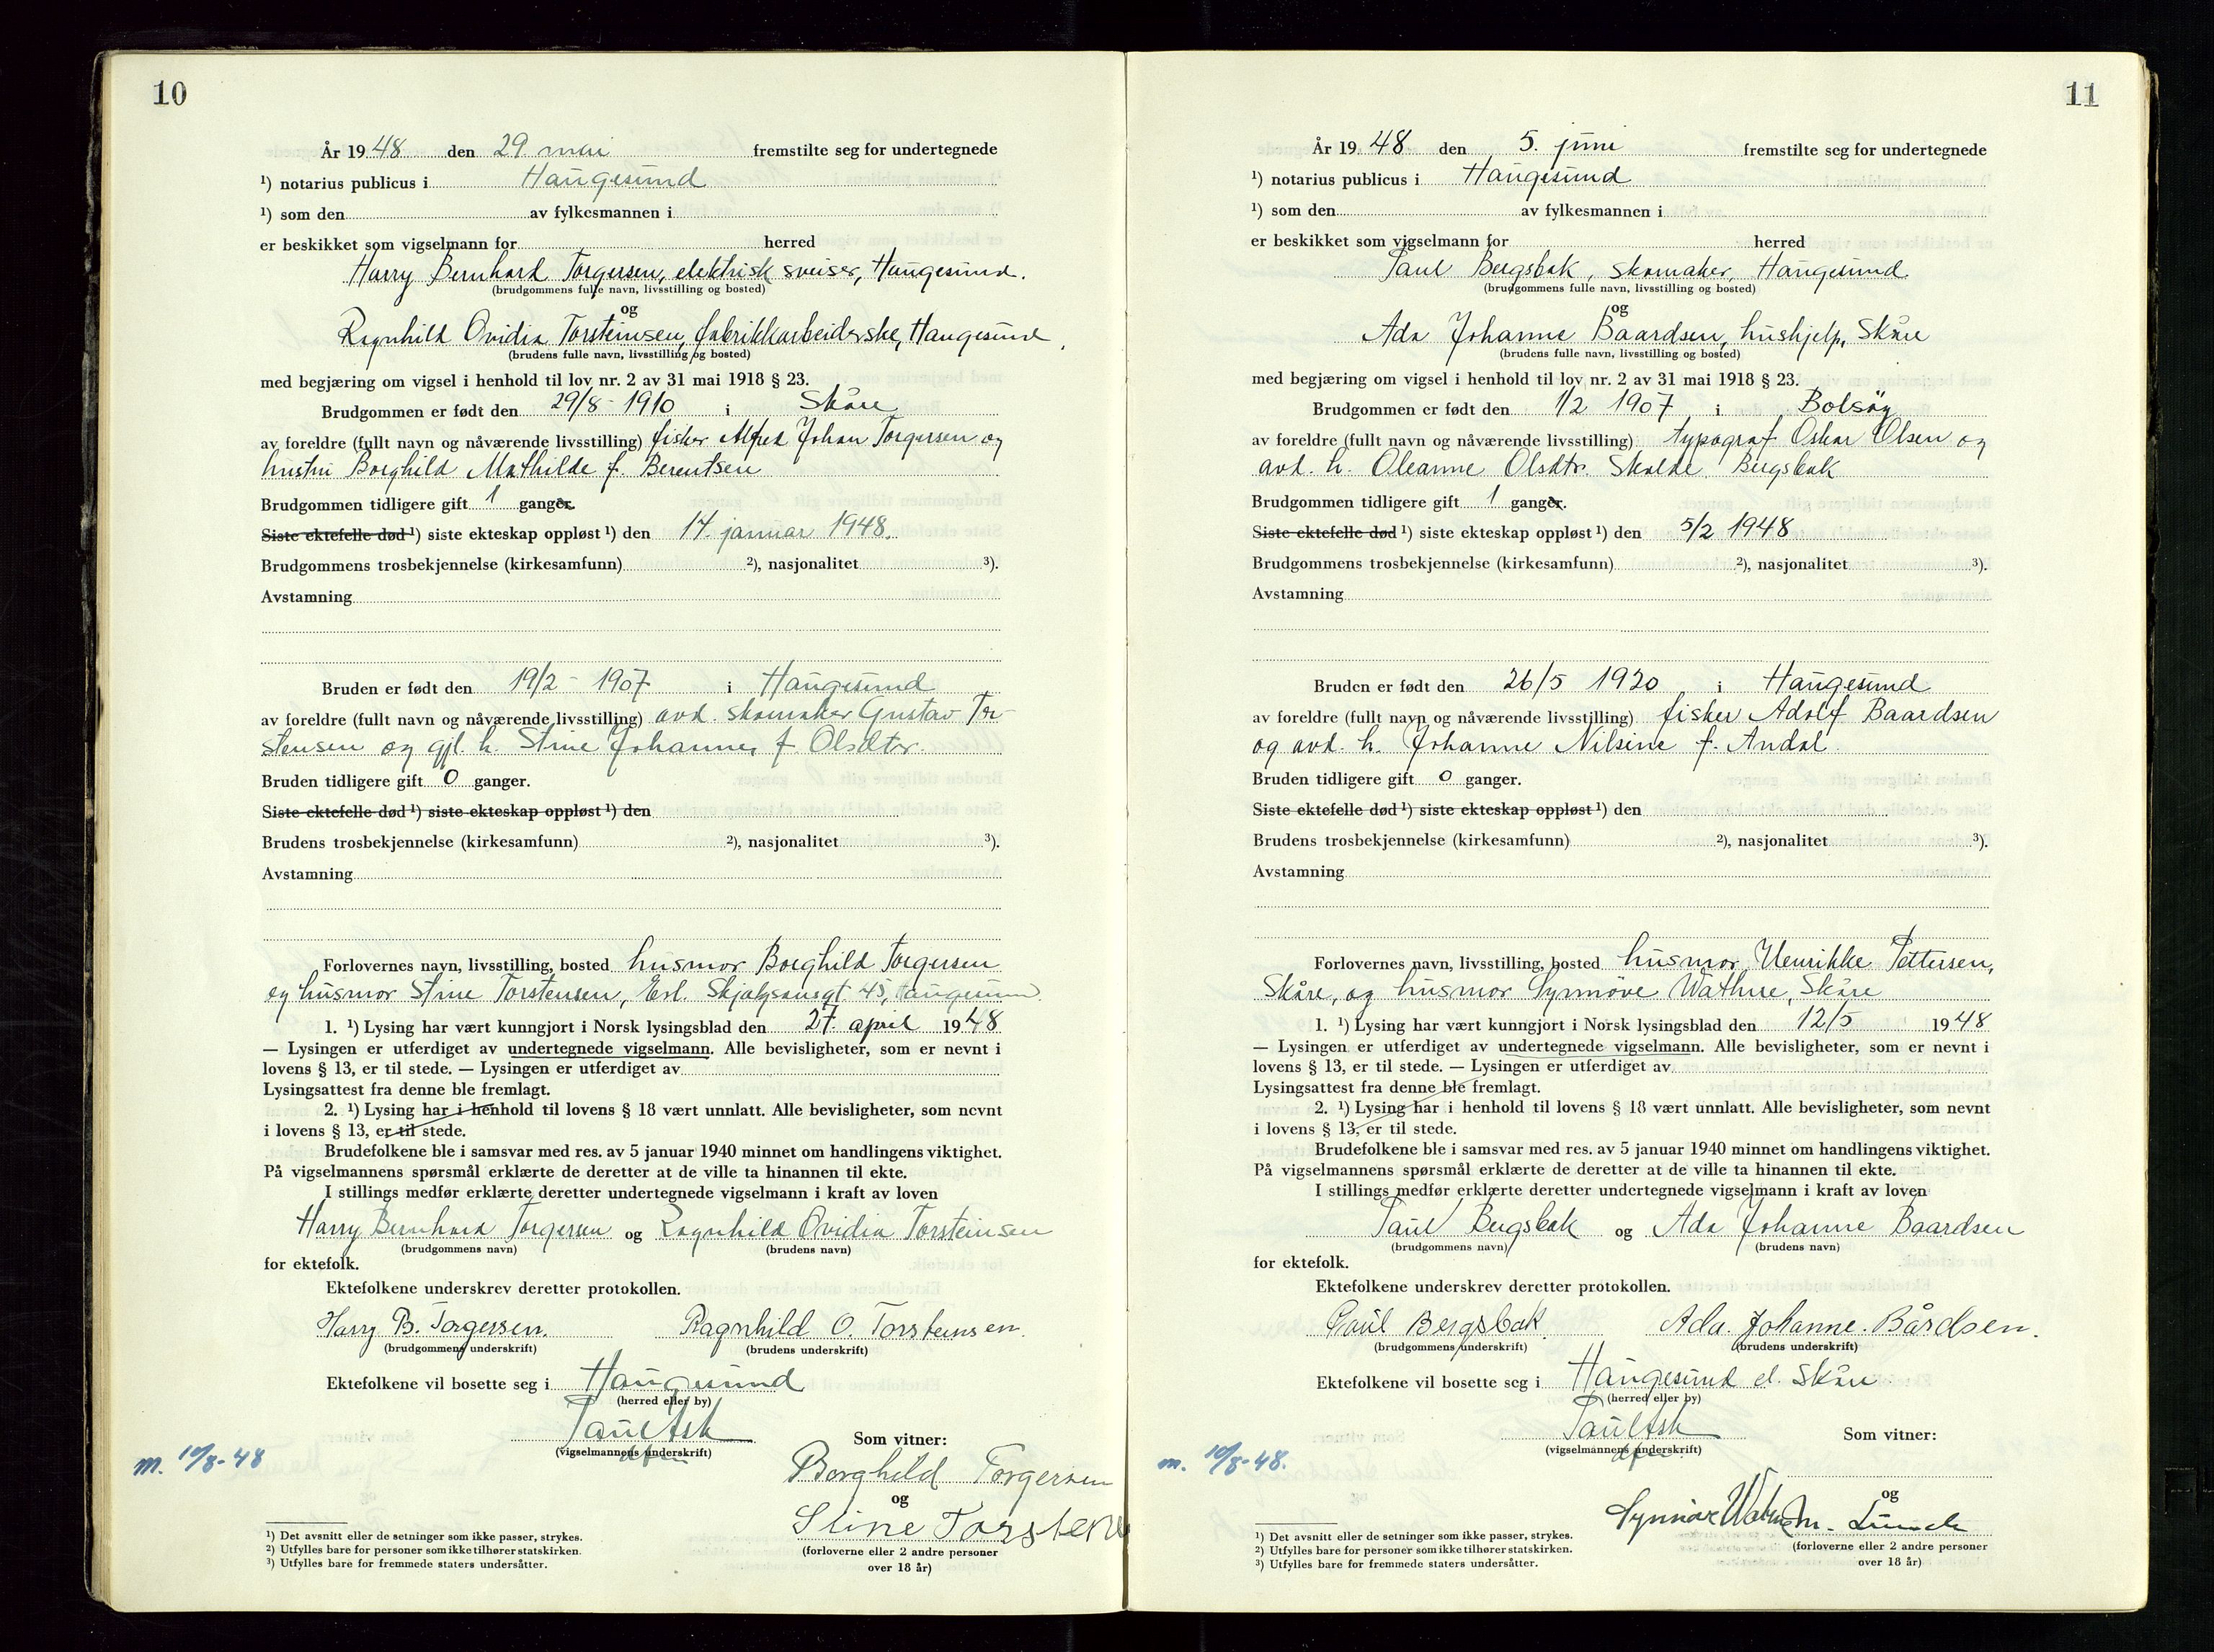 10
År 1948 den 29 mai fremstilte seg for undertegnede
¹) notarius publicus i Haugesund
¹) som den av fylkesmannen i
er beskikket som vigselmann for herred
Harry Bernhard Torgersen, elektrisk sveiser, Haugesund.
(brudgommens fulle navn, livsstilling og bosted)
og
Ragnhild Ovidia Torsteinsen, fabrikkarbeiderske, Haugesund,
(brudens fulle navn, livsstilling og bosted)
med begjæring om vigsel i henhold til lov nr. 2 av 31 mai 1918 § 23.
Brudgommen er født den 29/8 - 1910 i Skåre
av foreldre (fullt navn og nåværende livsstilling) fisker Alfred Johan Torgersen og
hustru Borghild Mathilde f. Berentsen
Brudgommen tidligere gift 1 ganger.
Siste ektefelle død ¹) siste ekteskap oppløst ¹) den 17. januar 1948.
Brudgommens trosbekjennelse (kirkesamfunn) ²), nasjonalitet ³).
Avstamning
Bruden er født den 19/2 - 1907 i Haugesund
av foreldre (fullt navn og nåværende livsstilling) avd. skomaker Gustav Tor-
stensen og gjl. h. Stine Johannes f. Olsdtr.
Bruden tidligere gift 0 ganger.
Siste ektefelle død ¹) siste ekteskap oppløst ¹) den
Brudens trosbekjennelse (kirkesamfunn) ²), nasjonalitet ³).
Avstamning
Forlovernes navn, livsstilling, bosted husmor Borghild Torgersen
og husmor Stine Torstensen, Erl. Skjalgsonsgt 45, Haugesund
1. ¹) Lysing har vært kunngjort i Norsk lysingsblad den 27. april 1948
— Lysingen er utferdiget av undertegnede vigselmann. Alle bevisligheter, som er nevnt i
lovens § 13, er til stede. — Lysingen er utferdiget av
Lysingsattest fra denne ble fremlagt.
2. ¹) Lysing har i henhold til lovens § 18 vært unnlatt. Alle bevisligheter, som nevnt
i lovens § 13, er til stede.
Brudefolkene ble i samsvar med res. av 5 januar 1940 minnet om handlingens viktighet.
På vigselmannens spørsmål erklærte de deretter at de ville ta hinannen til ekte.
I stillings medfør erklærte deretter undertegnede vigselmann i kraft av loven
Harry Bernhard Torgersen og Ragnhild Ovidia Torsteinsen
(brudgommens navn) (brudens navn)
for ektefolk.
Ektefolkene underskrev deretter protokollen.
Harry B. Torgersen. Ragnhild O. Torsteinsen.
(brudgommens underskrift) (brudens underskrift)
Ektefolkene vil bosette seg i Haugesund
(herred eller by)
Paul Ask
(vigselmannens underskrift)
Som vitner:
m. 10/8-48
Borghild Torgersen
og
Stine Torstens
(forloverne eller 2 andre personer
over 18 år)
¹) Det avsnitt eller de setninger som ikke passer, strykes.
²) Utfylles bare for personer som ikke tilhører statskirken.
³) Utfylles bare for fremmede staters undersåtter.
11
År 1948 den 5. juni fremstilte seg for undertegnede
¹) notarius publicus i Haugesund
¹) som den av fylkesmannen i
er beskikket som vigselmann for herred
Paul Bergsbak, skomaker, Haugesund.
(brudgommens fulle navn, livsstilling og bosted)
og
Ada Johanne Baardsen, hushjelp, Skåre
(brudens fulle navn, livsstilling og bosted)
med begjæring om vigsel i henhold til lov nr. 2 av 31 mai 1918 § 23.
Brudgommen er født den 1/2 1907 i Bolsöy
av foreldre (fullt navn og nåværende livsstilling) typograf Oskar Olsen og
avd. h. Oleanne Olsdtr. Skalde Bergsbak
Brudgommen tidligere gift 1 ganger.
Siste ektefelle død ¹) siste ekteskap oppløst ¹) den 5/2 1948
Brudgommens trosbekjennelse (kirkesamfunn) ²), nasjonalitet ³).
Avstamning
Bruden er født den 26/5 1920 i Haugesund
av foreldre (fullt navn og nåværende livsstilling) fisker Adolf Baardsen
og avd. h. Johanne Nilsine f. Andal.
Bruden tidligere gift 0 ganger.
Siste ektefelle død ¹) siste ekteskap oppløst ¹) den
Brudens trosbekjennelse (kirkesamfunn) ²), nasjonalitet ³).
Avstamning
Forlovernes navn, livsstilling, bosted husmor Henrikke Pettersen,
Skåre, og husmor Synnöve Wathne, Skåre
1. ¹) Lysing har vært kunngjort i Norsk lysingsblad den 12/5 1948
— Lysingen er utferdiget av undertegnede vigselmann. Alle bevisligheter, som er nevnt i
lovens § 13, er til stede. — Lysingen er utferdiget av
Lysingsattest fra denne ble fremlagt.
2. ¹) Lysing har i henhold til lovens § 18 vært unnlatt. Alle bevisligheter, som nevnt
i lovens § 13, er til stede.
Brudefolkene ble i samsvar med res. av 5 januar 1940 minnet om handlingens viktighet.
På vigselmannens spørsmål erklærte de deretter at de ville ta hinannen til ekte.
I stillings medfør erklærte deretter undertegnede vigselmann i kraft av loven
Paul Bergsbak og Ada Johanne Baardsen
(brudgommens navn) (brudens navn)
for ektefolk.
Ektefolkene underskrev deretter protokollen.
Paul Bergsbak. Ada. Johanne. Bårdsen.
(brudgommens underskrift) (brudens underskrift)
Ektefolkene vil bosette seg i Haugesund el. Skåre
(herred eller by)
Paul Ask
(vigselmannens underskrift)
Som vitner:
m. 10/8-48.
og
Synnöve Wathne M. Lunde
(forloverne eller 2 andre personer
over 18 år)
¹) Det avsnitt eller de setninger som ikke passer, strykes.
²) Utfylles bare for personer som ikke tilhører statskirken.
³) Utfylles bare for fremmede staters undersåtter.